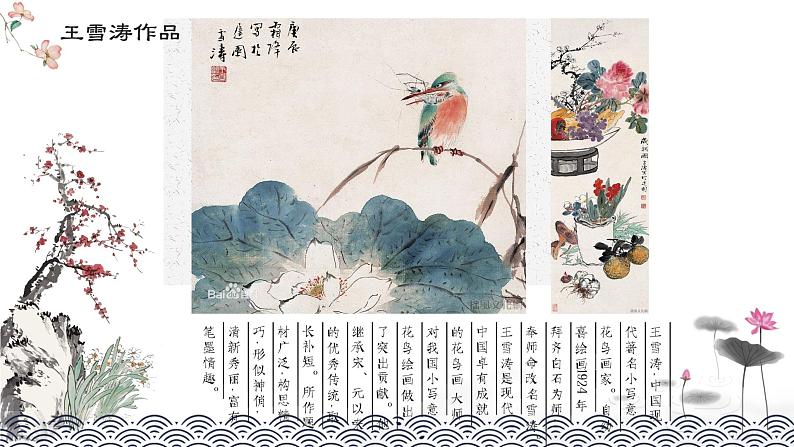 王雪涛作品
庚辰
霜降
写於
遲園
雪濤
Bai
王雪涛,中国现
代著名小写意
花鸟画家。自幼
喜绘画1924年
拜齐白石为师
奉师命改名雪涛。
王雪涛是现代
中国卓有成就
的花鸟画大师
对我国小写意
花鸟绘画做出
了突出贡献。他
继承宋、元以来
的优秀传统,取
长补短。所作题
材广泛,构思精
巧,形似神俏,
清新秀丽,富有
笔墨情趣。